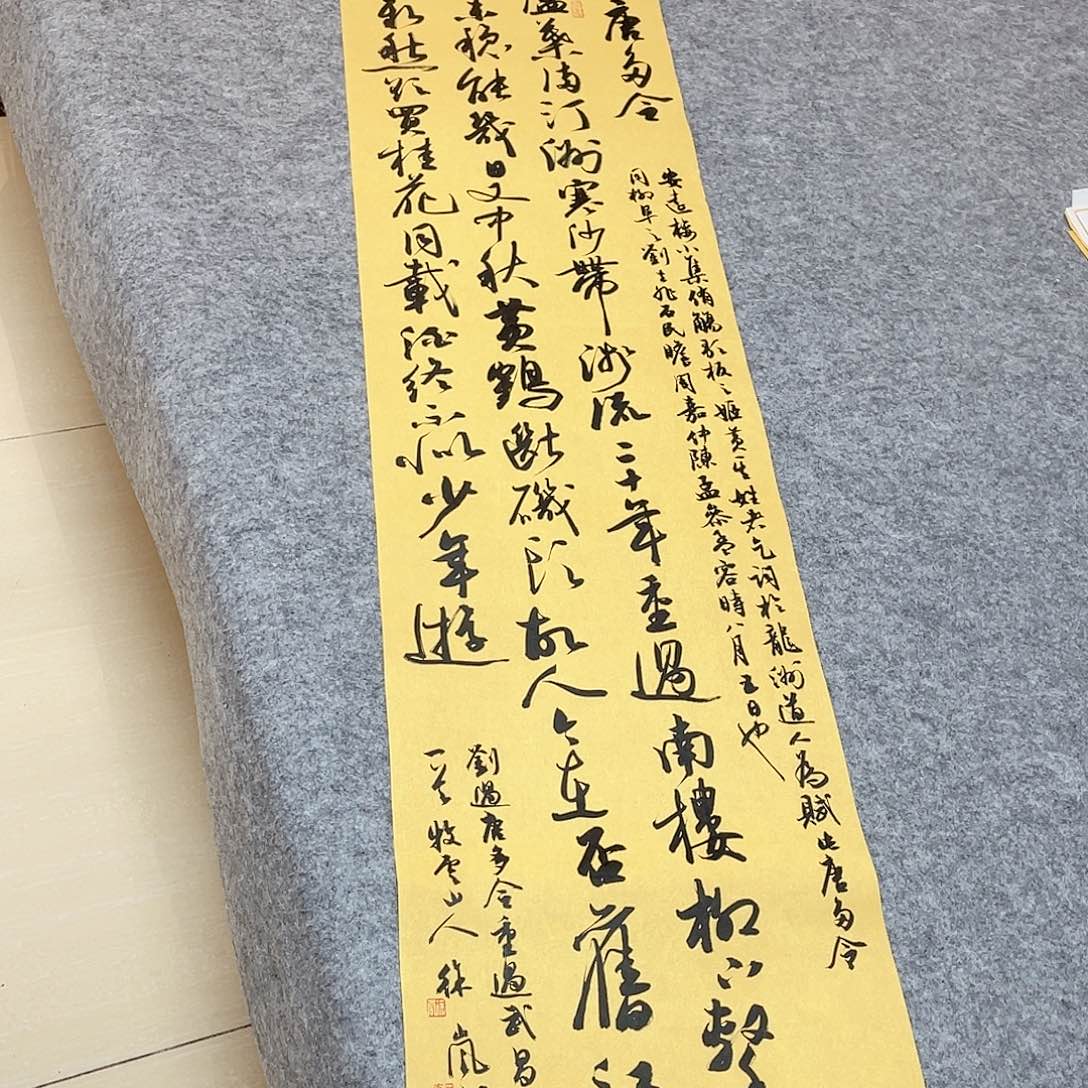 唐多令
安遠樓小集侑觴歌板之姬黃其姓者乞詞於龍洲道人為賦此唐多令
同柳阜之劉去非石民瞻周嘉仲陳孟參孟容時八月五日也
蘆葉滿汀洲寒沙帶淺流二十年重過南樓柳下繫
未穩能幾日又中秋黃鶴斷磯頭故人今在否舊江
新愁欲買桂花同載酒終不似少年遊
劉過唐多令重過武昌
一首牧雲山人徐嵐